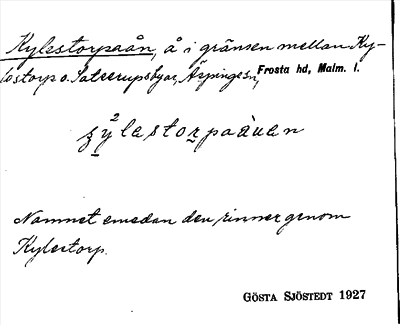 Kylestorpaån, å i gränsen mellan Ky-
lestorp o. Satserupsbyar, Äspinge sn, Frosta hd, Malm. l.
Namnet emedan den rinner genom
Kylestorp.
GÖSTA SJÖSTEDT 1927